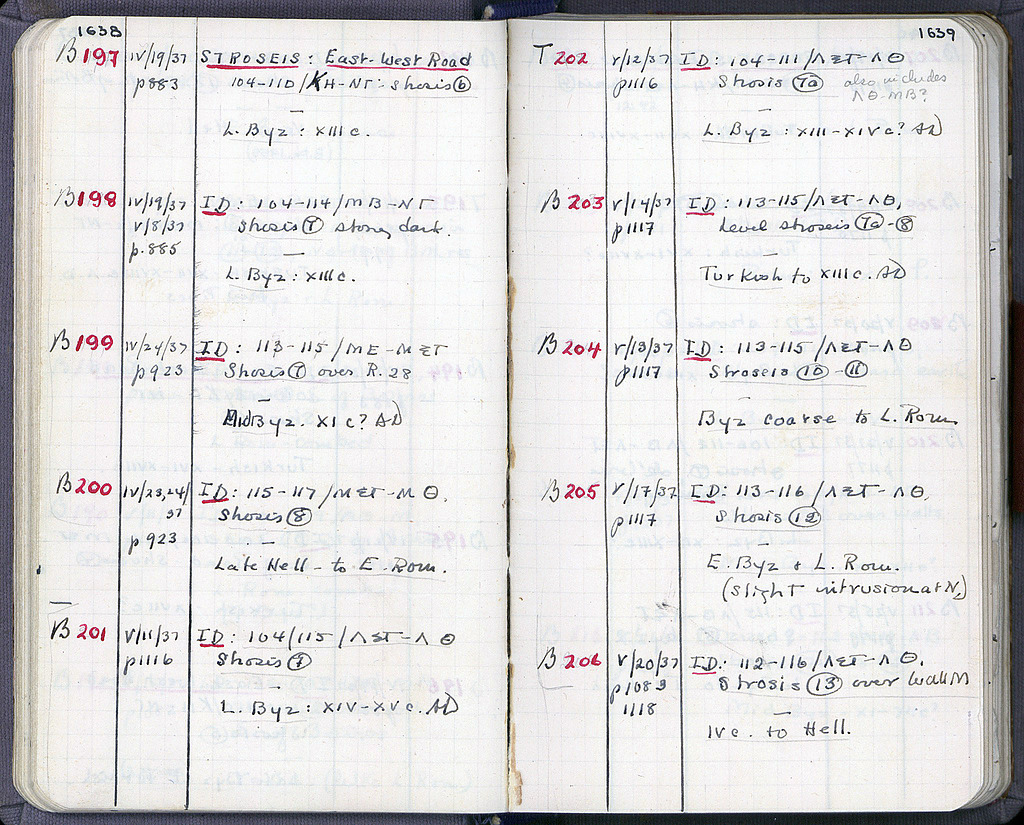 1638
B197 IV/19/37 STROSEIS: East-West Road
p883 104-110/KH-NT: Strosis 6
—
L. Byz: XIII c.
B198 IV/19/37 ID: 104-114/MB-NT
V/8/37 Strosis 7 stoney dark.
p.885 —
L. Byz: XIII c.
B199 IV/24/37 ID: 113-115/ME-MΣT
p923 Strosis 7 over R. 28
—
Mid Byz. XI c? AD
B200 IV/23,24/37 ID: 115-117/MΣT-MΘ.
Strosis 8
p923 —
Late Hell - to E. Rom.
B201 V/11/37 ID: 104/115/ΛΣT-ΛΘ
p1116 Strosis 7
—
L. Byz: XIV-XV c. AD
1639
T202 V/12/37 ID: 104-111/ΛΣT-ΛΘ
p1116 Strosis 7a also includes
ΛΘ-MB?
—
L. Byz: XIII-XIV c? AD
B203 V/14/37 ID: 113-115/ΛΣT-ΛΘ,
p1117 Level stroseis 7a-8
—
Turkish to XIII c. AD
B204 V/13/37 ID: 113-115/ΛΣT-ΛΘ
p1117 Stroseis 10-11
—
Byz coarse to L. Rom.
B205 V/17/37 ID: 113-116/ΛΣT-ΛΘ,
p1117 Strosis 12
—
E. Byz + L. Rom.
(Slight intrusion at N.)
B206 V/20/37 ID: 112-116/ΛΣT-ΛΘ.
p1083 Strosis 13 over Wall M
1118 —
IV c. to Hell.